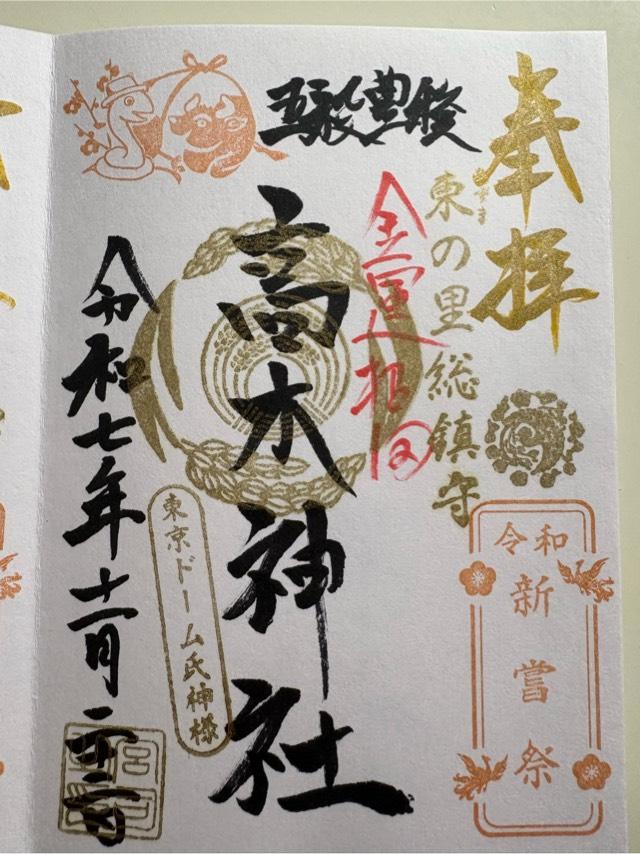 奉拝
東の里総鎮守
令和
新嘗祭
五穀豊穣
金運招
高木神社
東京ドーム氏神様
令和七年十一月二十三日